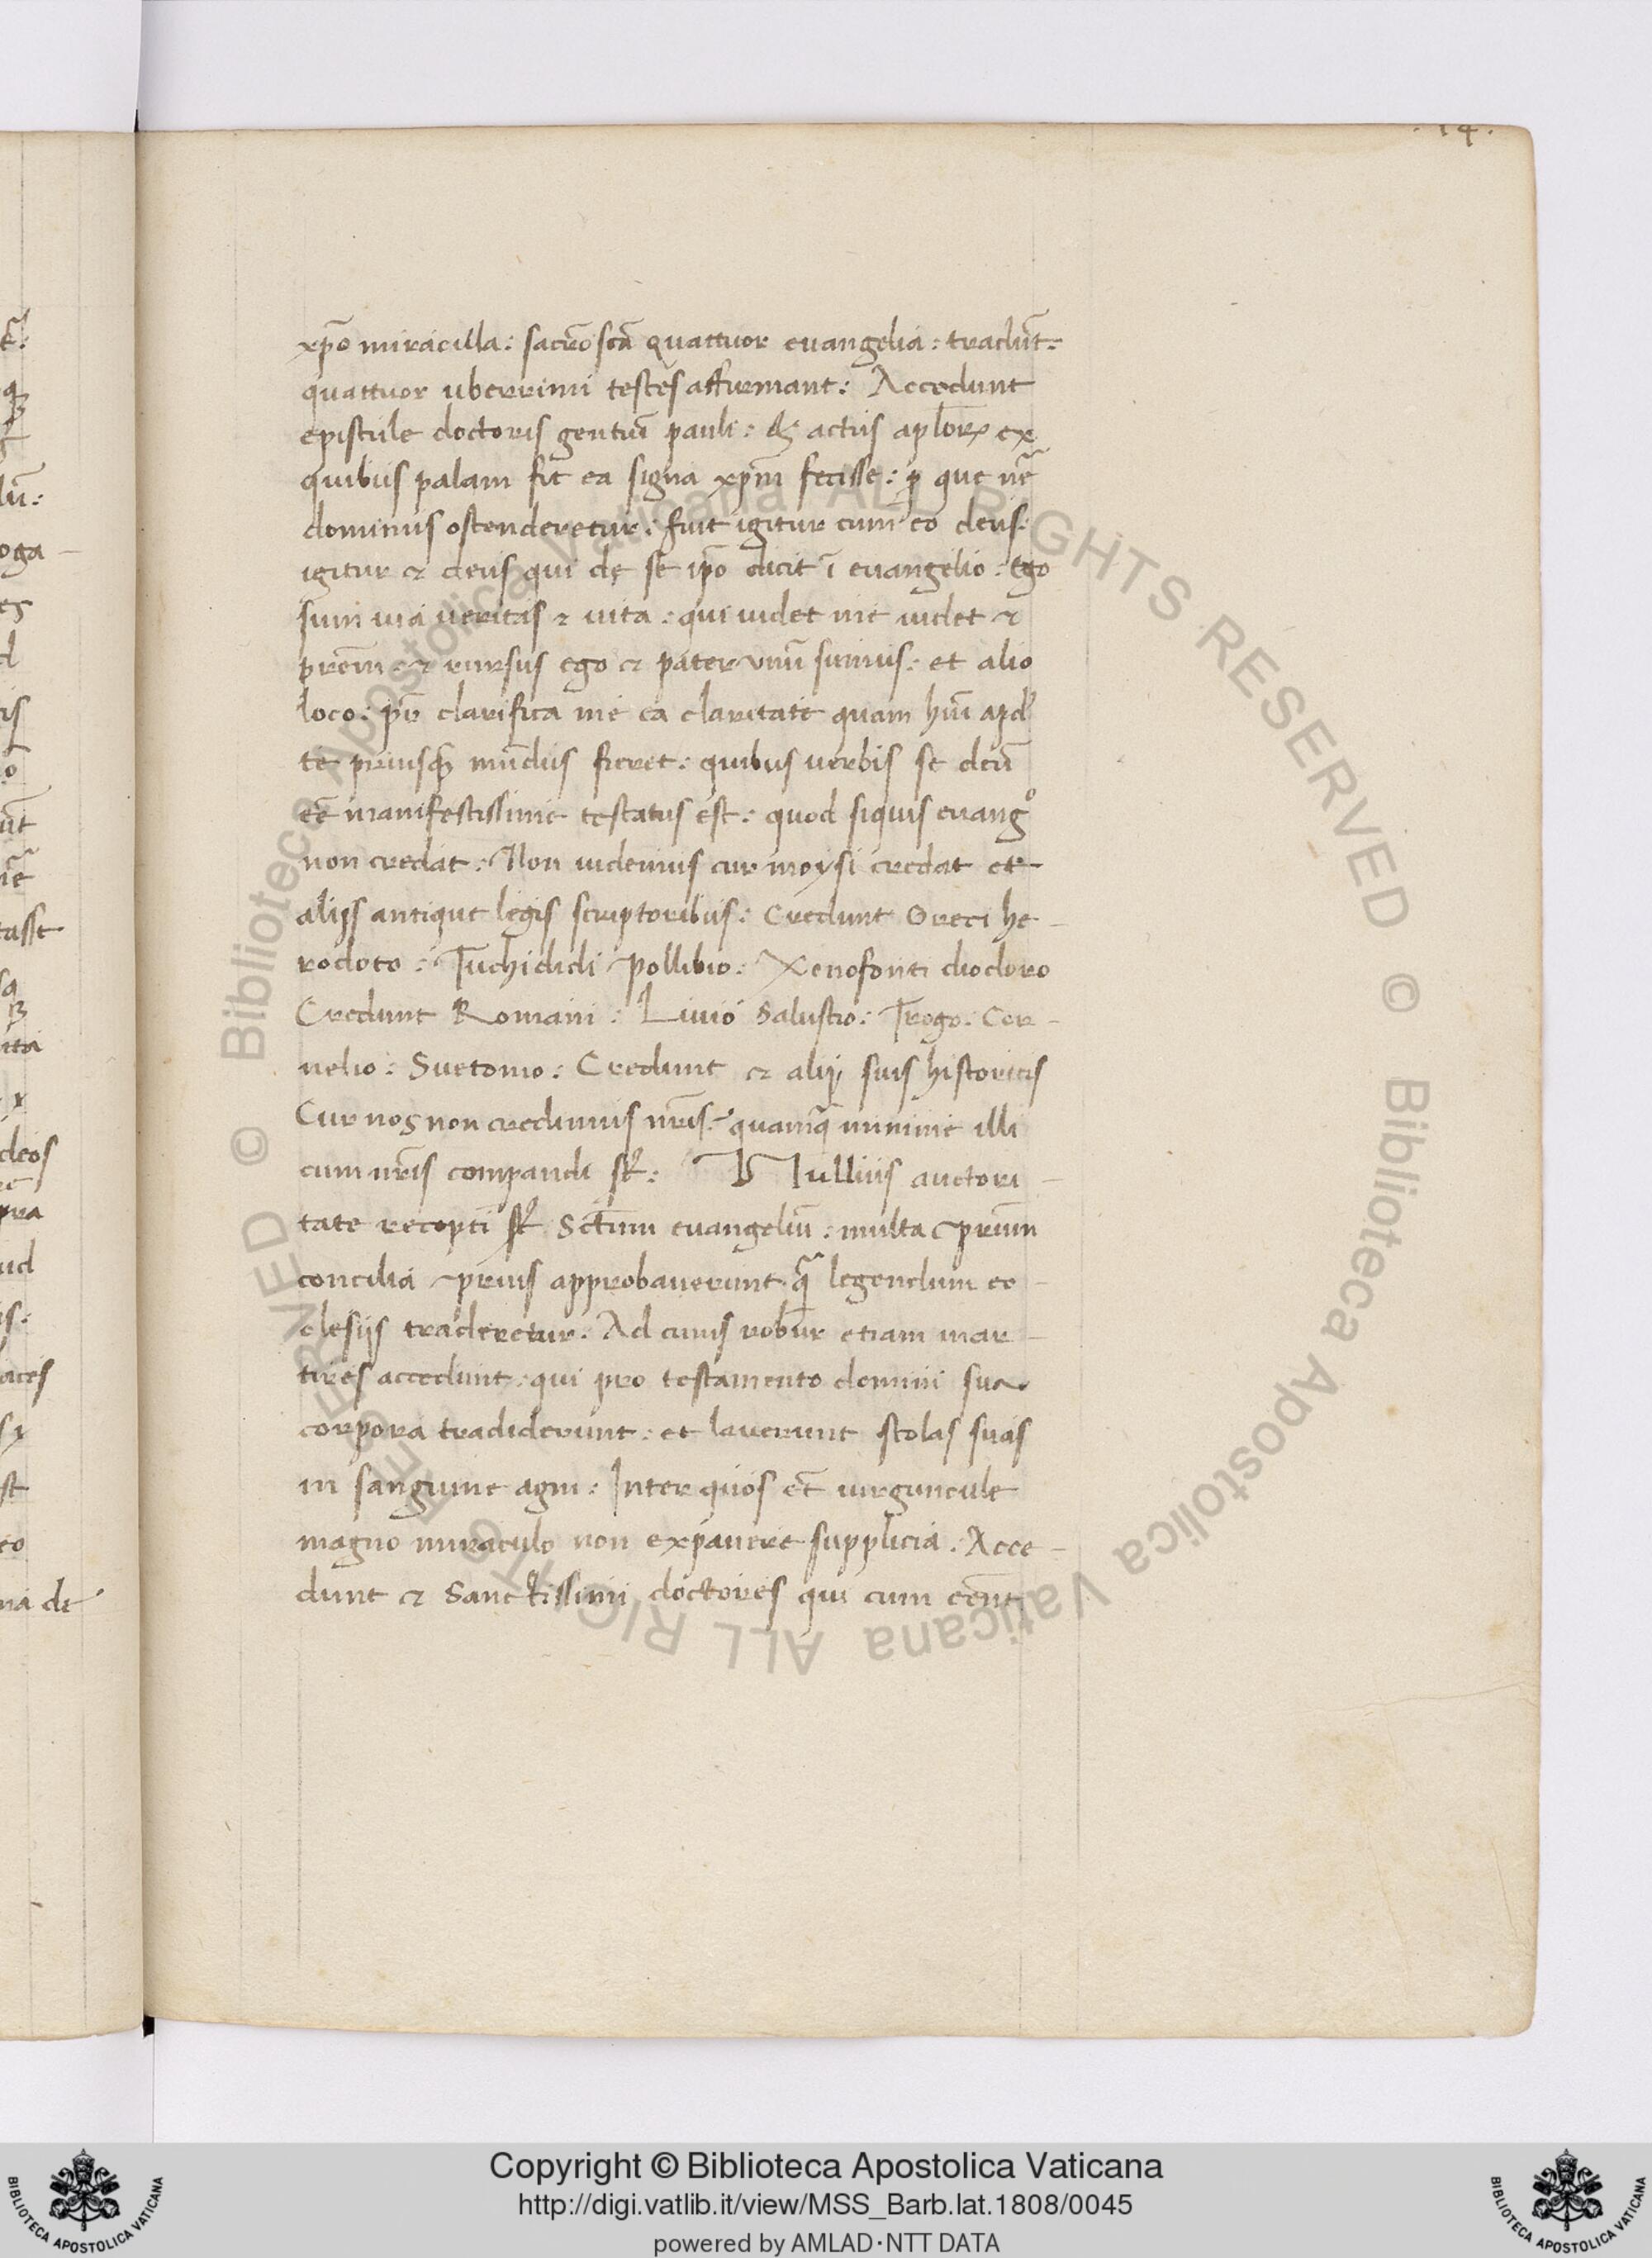 .14.
xp̄o miracula: sacrōsc̄a quattuor euangelia: tradūt:
quattuor uberrimi testes affirmant: Accedunt
epistule doctoris gentiū pauli: & actus ap̄lor̄ ex
quibus palam fit ea signa xp̄m fecisse: ꝑ que ūe
dominus ostenderetur: fuit igitur cum eo deus:
igitur & deus qui de se ip̄o dicit ī euangelio: Ego
sum uia ueritas & uita: qui uidet me uidet &
prēm: & rursus ego & pater vnū sumus: et alio
loco: p̄r clarifica me ea claritate quam hūi apd
te priusꝙ mūdus fieret: quibus uerbis se deū
eē manifestissime testatus est: quod siquis euang̊
non credat: Non uidemus cur moysi credat et
alijs antique legis scriptoribus: Credunt Greci he-
rodoto: Tuchididi Pollibio: Xenofonti diodoro
Credunt Romani: Liuio Salustio: Trogo: Cor-
nelio: Suetonio: Credunt & alij suis historicis
Cur nos non credimus nr̄is: quamq̄ minime illi
cum nr̄is compandi st̄: Nullius auctori-
tate recepti st̄ Sc̄tum euangeliū: multa prium
concilia prius approbauerunt q̄ legendum ec-
clesijs traderetur: Ad cuius robur etiam mar-
tires accedunt: qui pro testamento domini sua
corpora tradiderunt: et lauerunt stolas suas
in sanguine agni: Inter quos et̄ uirguncule
magno miraculo non expauere supplicia: Acce-
dunt & Sanctissimi doctores qui cum eēnt
Copyright © Biblioteca Apostolica Vaticana
http://digi.vatlib.it/view/MSS_Barb.lat.1808/0045
powered by AMLAD·NTT DATA
BIBLIOTECA APOSTOLICA VATICANA
BIBLIOTECA APOSTOLICA VATICANA
© Biblioteca Apostolica Vaticana ALL RIGHTS RESERVED
© Biblioteca Apostolica Vaticana ALL RIGHTS RESERVED